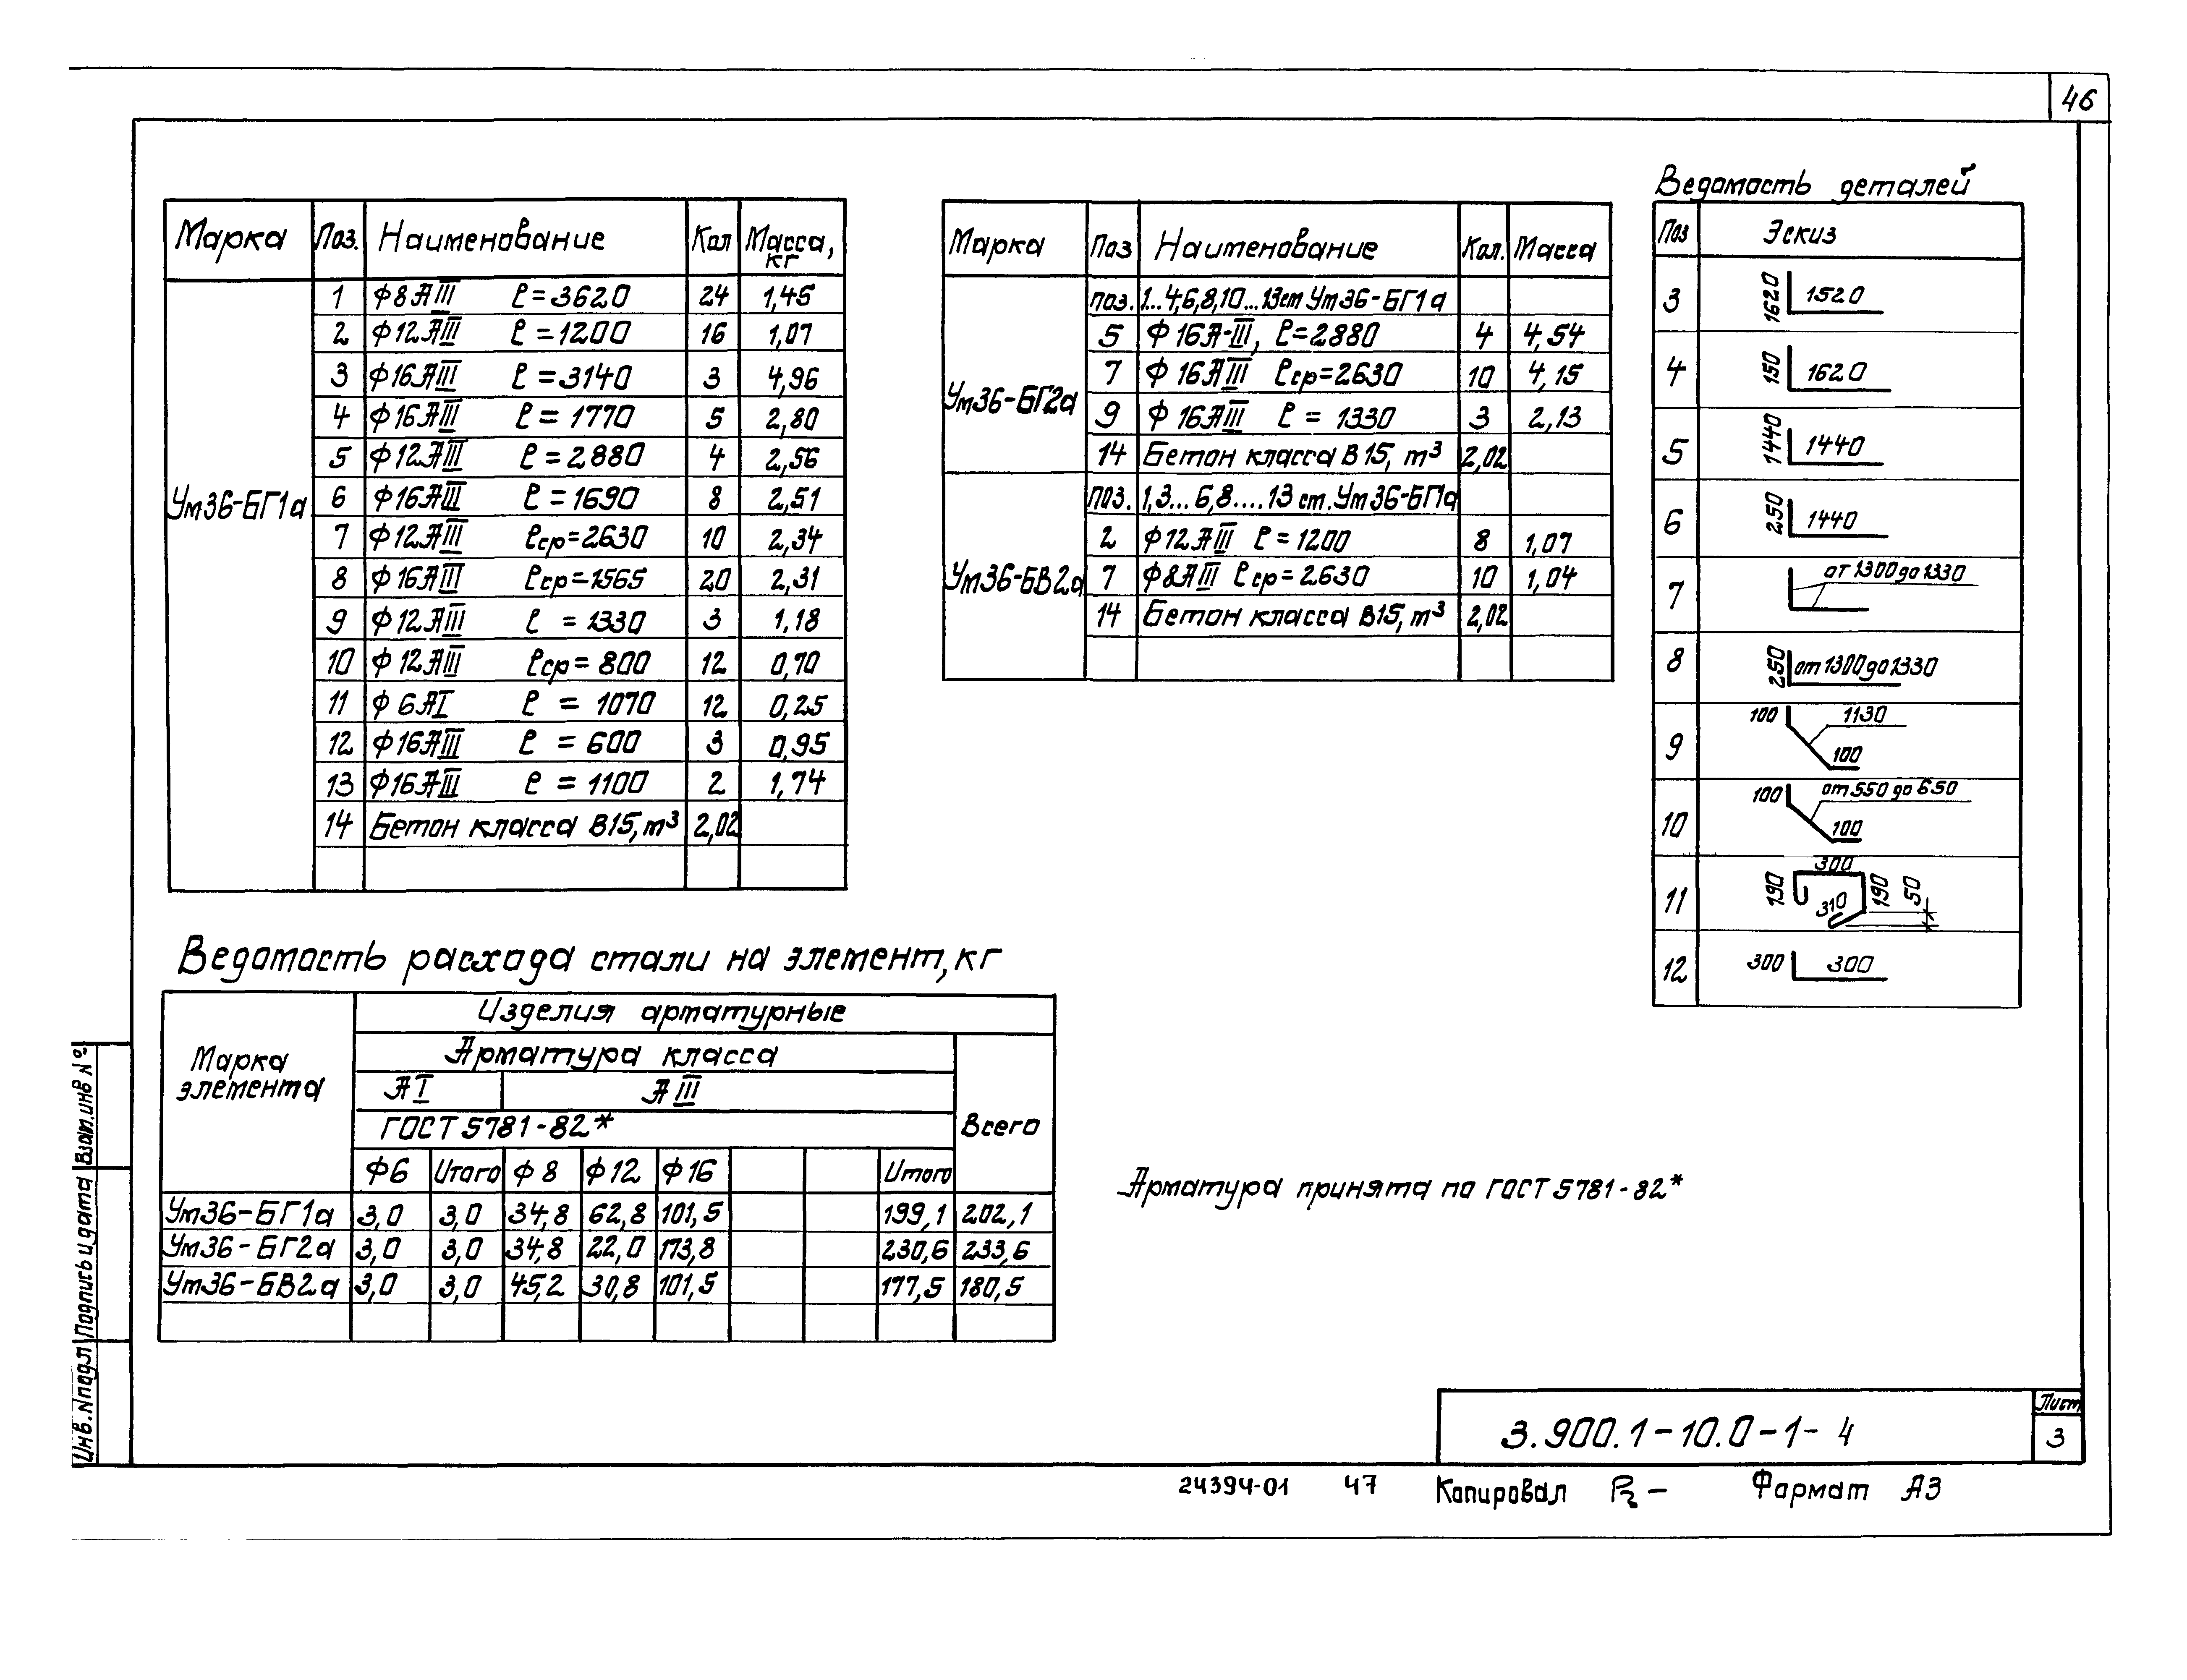 46
Марка Поз. Наименование Кол Масса, кг
Ум36-БГ1а
1 Ф8АIII ℓ=3620 24 1,45
2 Ф12АIII ℓ=1200 16 1,07
3 Ф16АIII ℓ=3140 3 4,96
4 Ф16АIII ℓ=1770 5 2,80
5 Ф12АIII ℓ=2880 4 2,56
6 Ф16АIII ℓ=1690 8 2,51
7 Ф12АIII ℓср=2630 10 2,34
8 Ф16АIII ℓср=1565 20 2,31
9 Ф12АIII ℓ=1330 3 1,18
10 Ф12АIII ℓср=800 12 0,70
11 Ф6АI ℓ=1070 12 0,25
12 Ф16АIII ℓ=600 3 0,95
13 Ф16АIII ℓ=1100 2 1,74
14 Бетон класса В15, m³ 2,02
Марка Поз Наименование Кол. Масса
Ум36-БГ2а
поз. 1...4,6,8,10...13 ст Ум36-БГ1а
5 Ф16А-III, ℓ=2880 4 4,54
7 Ф16АIII ℓср=2630 10 4,15
9 Ф16АIII ℓ=1330 3 2,13
14 Бетон класса В15, m³ 2,02
Ум36-БВ2а
поз. 1,3...6,8....13 ст. Ум36-БГ1а
2 Ф12АIII ℓ=1200 8 1,07
7 Ф8АIII ℓср=2630 10 1,04
14 Бетон класса В15, m³ 2,02
Ведомость деталей
Поз Эскиз
3 1620 1520
4 150 1620
5 1440 1440
6 250 1440
7 от 1300 до 1330
8 250 от 1300 до 1330
9 100 1130 100
10 100 от 550 до 650 100
11 190 300 310 190 50
12 300 300
Ведомость расхода стали на элемент, кг
Марка элемента
Изделия арматурные
Арматура класса
АI АIII
ГОСТ 5781-82*
Всего
Ф6 Итого Ф8 Ф12 Ф16 Итого
Ум36-БГ1а 3,0 3,0 34,8 62,8 101,5 199,1 202,1
Ум36-БГ2а 3,0 3,0 34,8 22,0 173,8 230,6 233,6
Ум36-БВ2а 3,0 3,0 45,2 30,8 101,5 177,5 180,5
Арматура принята по ГОСТ 5781-82*
Взам.инв №
Подпись и дата
Инв.Nподл
3.900.1-10.0-1-4
Лист
3
24394-01 47 Копировал Формат А3